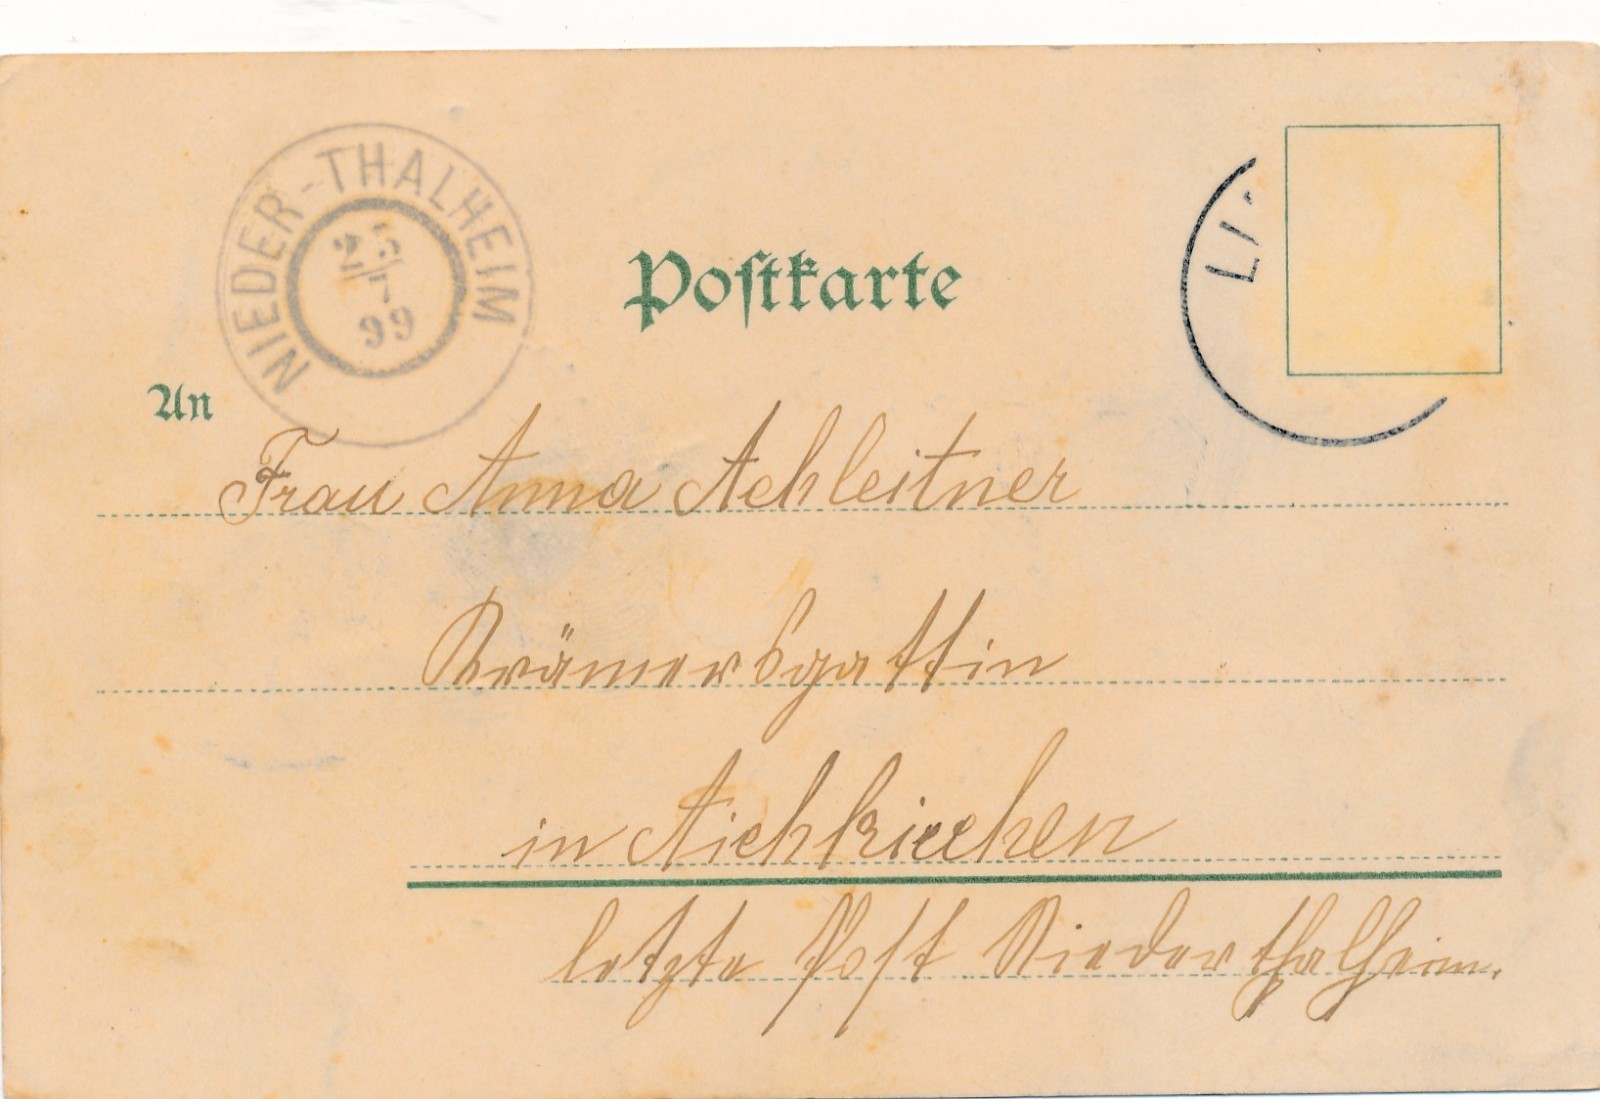 NIEDER-THALHEIM
25/7
99
Postkarte
LI
An
Frau Anna Achleitner
Krämersgattin
in Aichkirchen
letzte Post Niederthalheim.